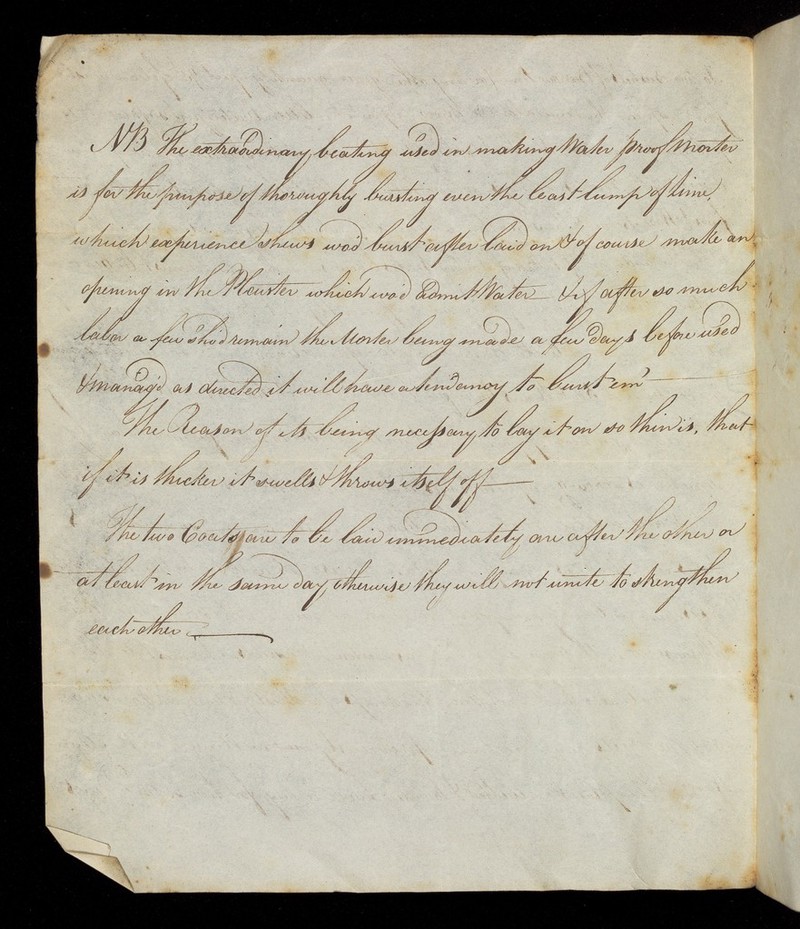 NB The extraordinary beating used in making Water proof Morter
is for the purpose of thoroughly bursting even the least lump of Lime,
which experience shews wod burst after laid on & of course make an
opening in the Plaister which wod admit Water — & if after so much
labor a few shod remain the Morter being made a few days before used
& manag'd as directed it will have a tendancy to burst em —
The Reason of its being necessary to lay it on so thin is, that
if it is thicker it swells & throws itself off —
The two Coats are to be laid immediately one after the other or
at least in the same day otherwise they will not unite to strengthen
each other. —